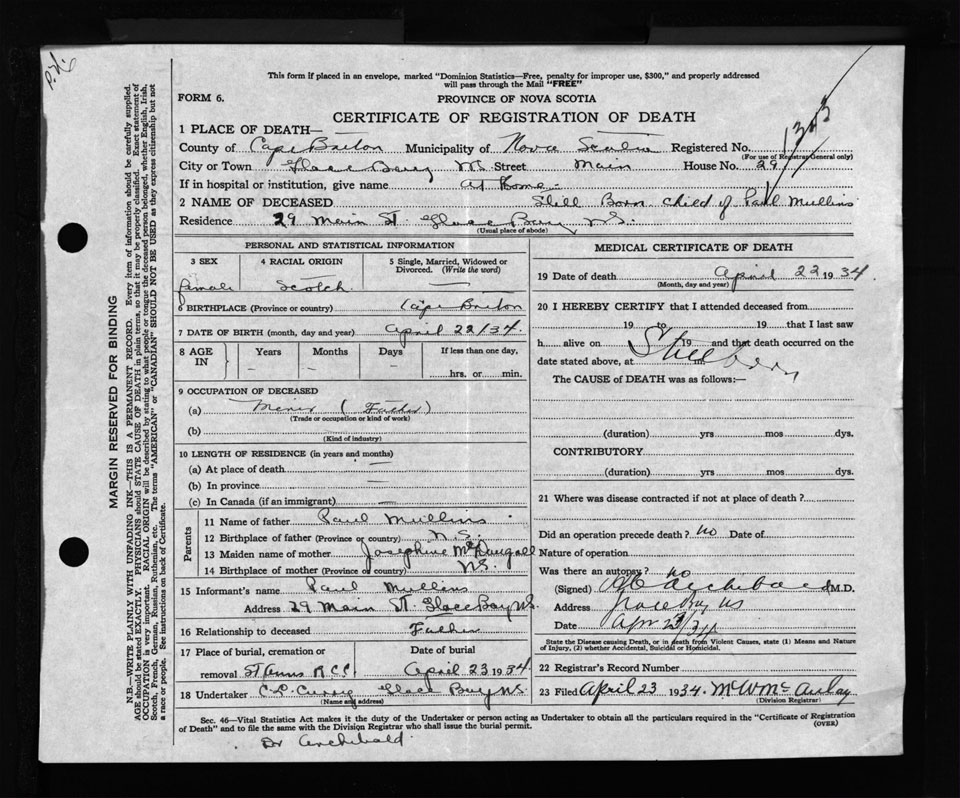 This form if placed in an envelope, marked "Dominion Statistics—Free, penalty for improper use, $300," and properly addressed
will pass through the Mail "FREE"
FORM 6.
PROVINCE OF NOVA SCOTIA
CERTIFICATE OF REGISTRATION OF DEATH
1 PLACE OF DEATH—
County of Cape Breton Municipality of Nova Scotia Registered No.
(For use of Registrar General only)
City or Town Glace Bay NS Street Main House No. 29
If in hospital or institution, give name at Home
2 NAME OF DECEASED Still Born child of Paul Mullins
Residence 29 Main St. Glace Bay N.S.
(Usual place of abode)
PERSONAL AND STATISTICAL INFORMATION
3 SEX 4 RACIAL ORIGIN 5 Single, Married, Widowed or Divorced. (Write the word)
female Scotch —
6 BIRTHPLACE (Province or country) Cape Breton
7 DATE OF BIRTH (month, day and year) April 22/34.
8 AGE IN Years Months Days If less than one day,
— — — hrs. or min.
9 OCCUPATION OF DECEASED
(a) Miner (Father)
(Trade or occupation or kind of work)
(b)
(Kind of industry)
10 LENGTH OF RESIDENCE (in years and months)
(a) At place of death —
(b) In province —
(c) In Canada (if an immigrant) —
Parents
11 Name of father Paul Mullins
12 Birthplace of father (Province or country) N.S.
13 Maiden name of mother Josephine McDougall
14 Birthplace of mother (Province or country) NS.
15 Informant's name Paul Mullins
Address 29 Main St. Glace Bay NS.
16 Relationship to deceased Father
17 Place of burial, cremation or Date of burial
removal St Anns R.C.C. April 23 1934.
18 Undertaker C.P. Curry Glace Bay NS.
(Name and address)
MEDICAL CERTIFICATE OF DEATH
19 Date of death April 22 1934.
(Month, day and year)
20 I HEREBY CERTIFY that I attended deceased from
19 to 19 that I last saw
h alive on 19 and that death occurred on the
date stated above, at m.
Still born
The CAUSE OF DEATH was as follows:—
(duration) yrs mos dys.
CONTRIBUTORY
(duration) yrs mos dys.
21 Where was disease contracted if not at place of death?
Did an operation precede death? no Date of
Nature of operation
Was there an autopsy? no
(Signed) Archibald M.D.
Address Glace Bay NS
Date Apr 23/34
State the Disease causing Death, or in death from Violent Causes, state (1) Means and Nature
of Injury, (2) whether Accidental, Suicidal or Homicidal.
22 Registrar's Record Number
23 Filed April 23 1934. McAulay
(Division Registrar)
Sec. 46—Vital Statistics Act makes it the duty of the Undertaker or person acting as Undertaker to obtain all the particulars required in the "Certificate of Registration
of Death" and to file the same with the Division Registrar who shall issue the burial permit.
(OVER)
Dr Archibald
MARGIN RESERVED FOR BINDING
N.B.—WRITE PLAINLY WITH UNFADING INK—THIS IS A PERMANENT RECORD. Every item of information should be carefully supplied.
AGE should be stated EXACTLY. PHYSICIANS should STATE CAUSE OF DEATH in plain terms, so that it may be properly classified. Exact statement of
OCCUPATION is very important. RACIAL ORIGIN will be described by stating to what people or tongue the deceased person belonged, whether English, Irish,
Scotch, French, German, Russian, Ruthenian, etc. The terms "AMERICAN" or "CANADIAN" SHOULD NOT BE USED as they express citizenship but not
a race or people. See instructions on back of Certificate.